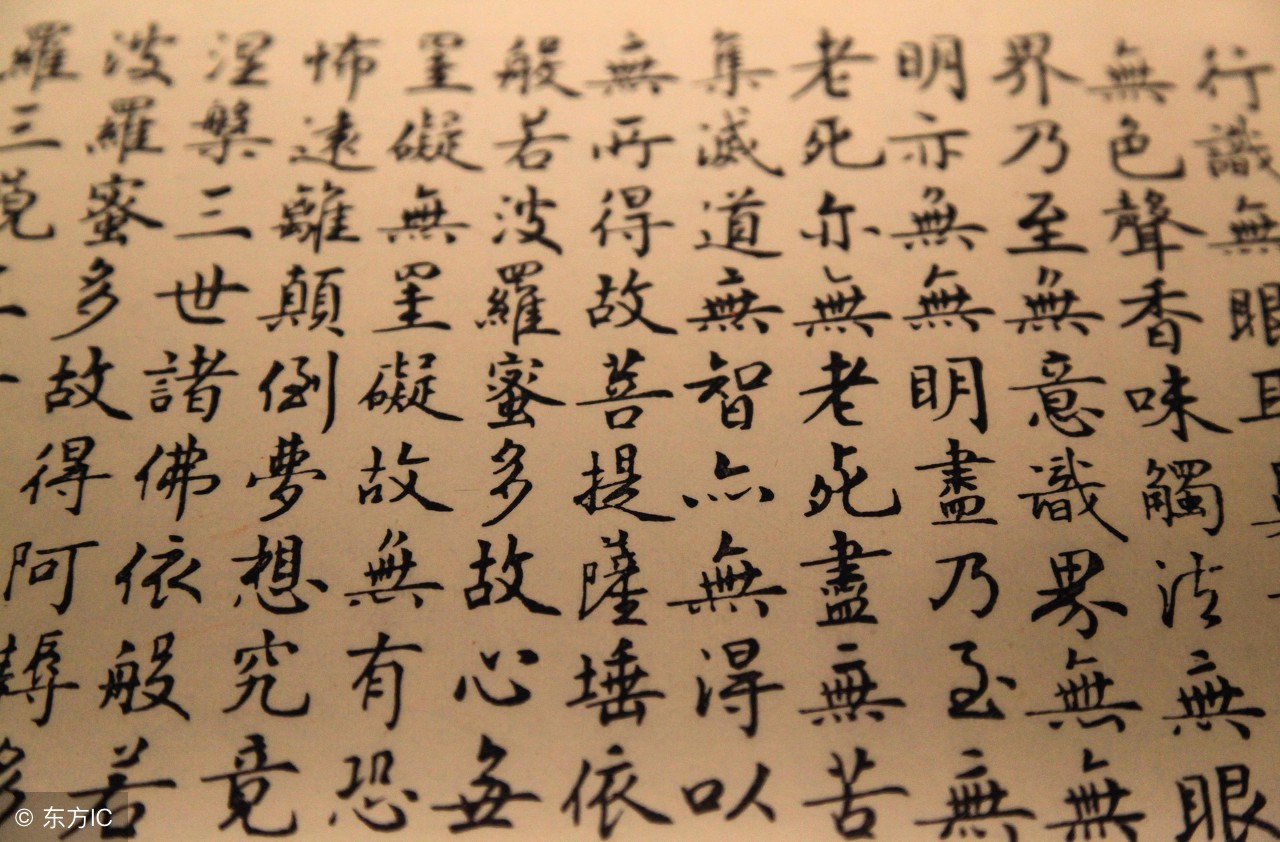 行識無眼
無色聲香味觸法無眼
界乃至無意識界無無
明亦無無明盡乃至無
老死亦無老死盡無苦
集滅道無智亦無得以
無所得故菩提薩埵依
般若波羅蜜多故心無
罣礙無罣礙故無有恐
怖遠離顛倒夢想究竟
涅槃三世諸佛依般若
波羅蜜多故得阿耨多
羅三藐三
© 东方IC